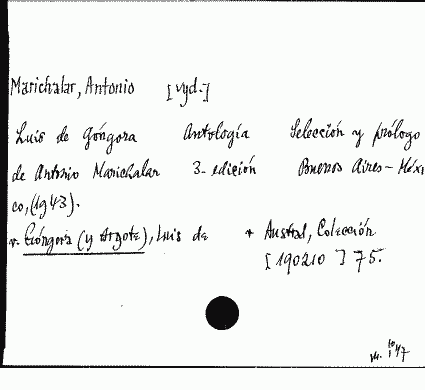 Marichalar, Antonio [vyd.]
Luis de Góngora Antología Selección y prólogo
de Antonio Marichalar 3. edición Buenos Aires - Méxi
co, (1943).
+ Góngora (y Argote), Luis de + Austral, Colección
[190210] 75.